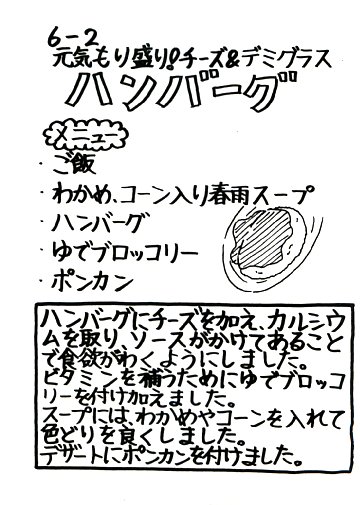 6-2
元気もり盛り!チーズ&デミグラス
ハンバーグ
メニュー
・ご飯
・わかめ、コーン入り春雨スープ
・ハンバーグ
・ゆでブロッコリー
・ポンカン
ハンバーグにチーズを加え、カルシウ
ムを取り、ソースがかけてあること
で食欲がわくようにしました。
ビタミンを補うためにゆでブロッコ
リーを付け加えました。
スープには、わかめやコーンを入れて
色どりを良くしました。
デザートにポンカンを付けました。